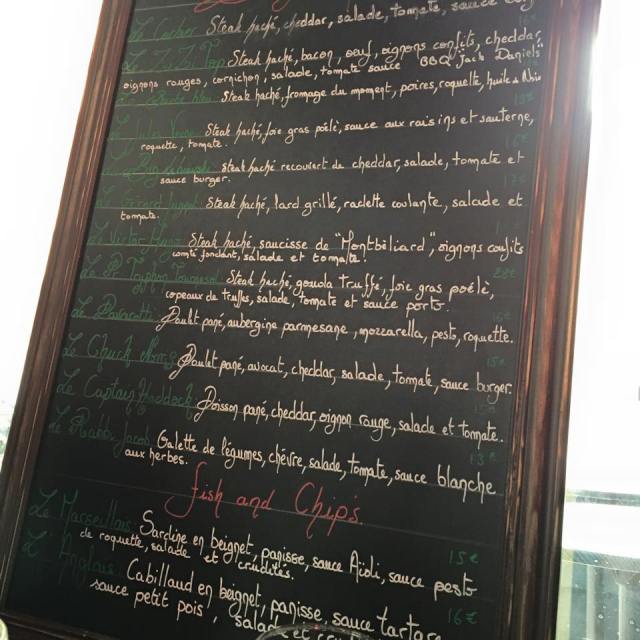 Steak haché, cheddar, salade, tomate, sauce
Le Zizi Top Steak haché, bacon, oeuf, oignons confits, cheddar,
oignons rouges, cornichon, salade, tomate sauce BBQ "Jack Daniels"
Steak haché, fromage du moment, poires, roquette, huile de Noix
Steak haché, foie gras poêlé, sauce aux raisins et sauterne,
roquette, tomate.
Steak haché recouvert de cheddar, salade, tomate et
sauce burger.
Steak haché, lard grillé, raclette coulante, salade et
tomate.
Le Victor Hugo Steak haché, saucisse de "Montbéliard", oignons confits
comté fondant, salade et tomate.
Steak haché, gouda truffé, foie gras poêlé,
copeaux de truffes, salade, tomate et sauce porto.
Le Pavarotti Poulet pané, aubergine parmesane, mozzarella, pesto, roquette.
Le Chuck Norris Poulet pané, avocat, cheddar, salade, tomate, sauce burger.
Le Captain Haddock Poisson pané, cheddar, oignon rouge, salade et tomate.
Le Rabbi Jacob Galette de légumes, chèvre, salade, tomate, sauce blanche
aux herbes.
Fish and Chip's
Le Marseillais Sardine en beignet, panisse, sauce Aïoli, sauce pesto 15€
de roquette, salade et crudités.
L'Anglais Cabillaud en beignet, panisse, sauce tartare 16€
sauce petit pois, salade et